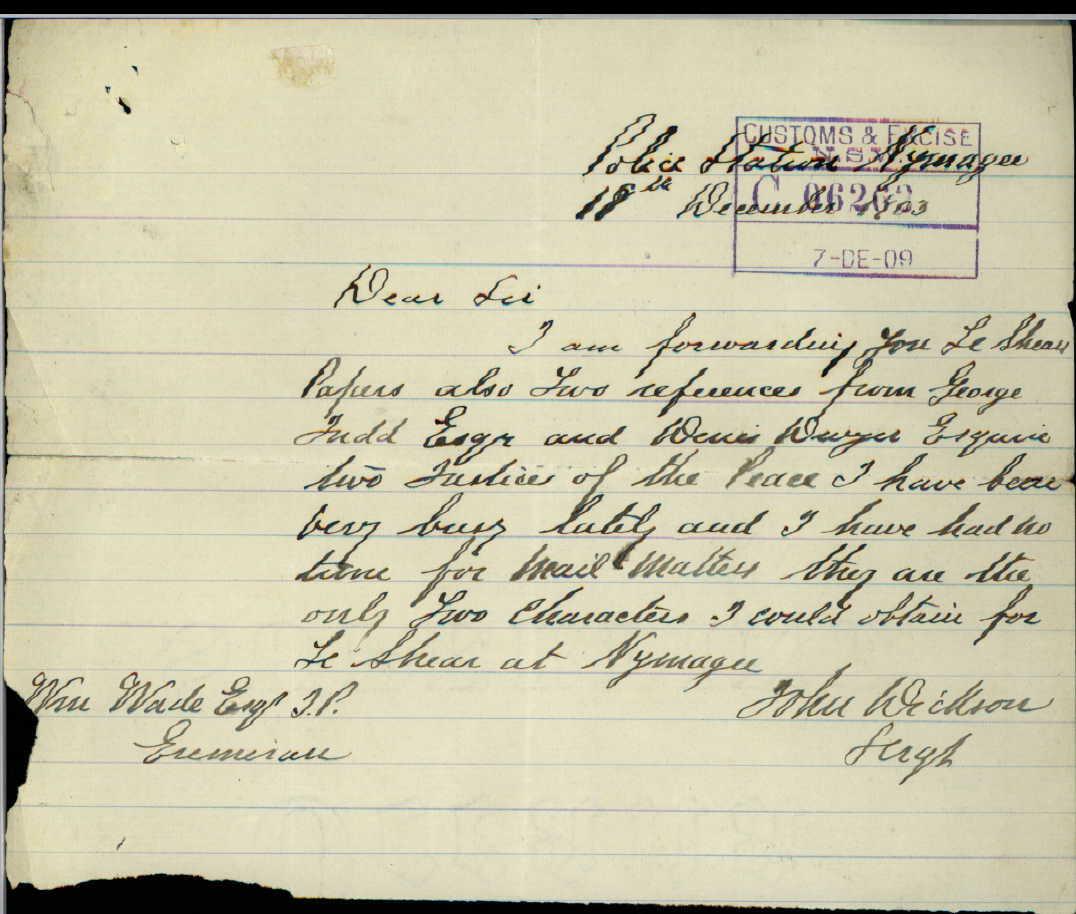 Police Station Nymagee
18th December 1903
CUSTOMS & EXCISE
N.S.W.
C 06
7-DE-09
Dear Sir
I am forwarding you Le Shear
Papers also Two references from George
Judd Esqr and Denis Dwyer Esquire
two Justices of the Peace I have been
very busy lately and I have had no
time for Mail Matters they are the
only Two Characters I could obtain for
Le Shear at Nymagee
Wm Wade Esqr J.P.
John Dickson
Eremeran
Sergt